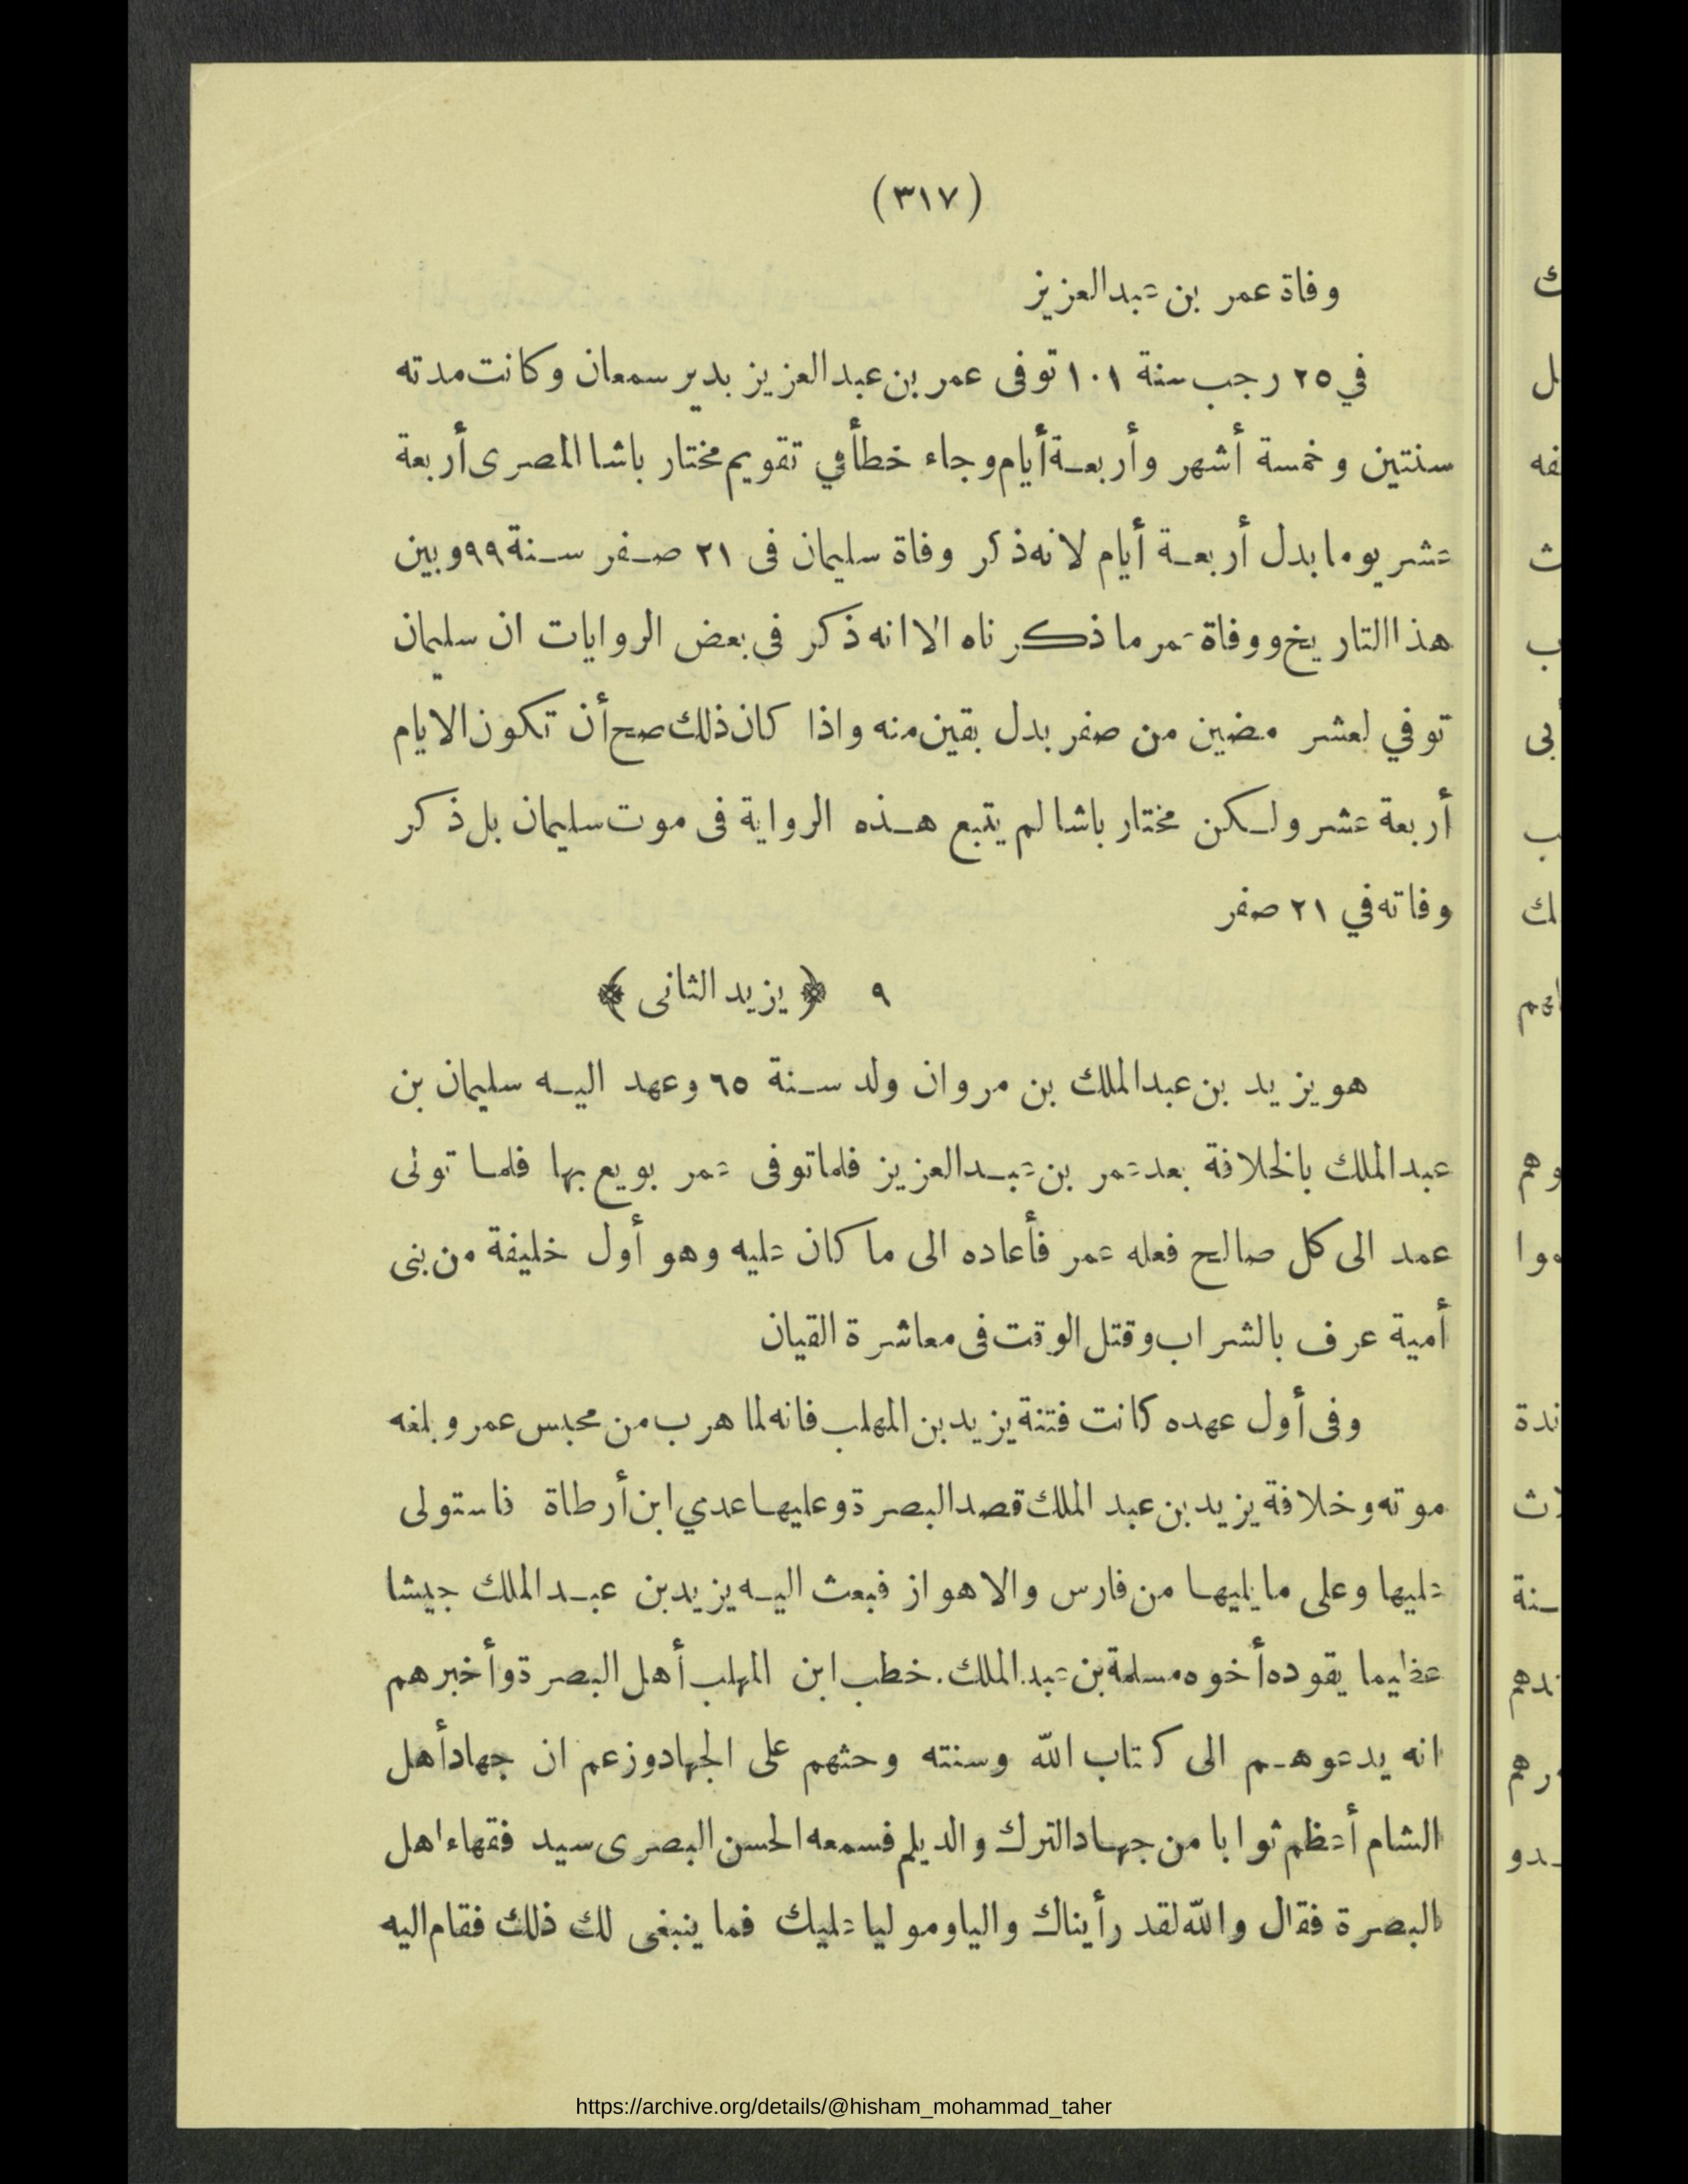 (٣١٧)
وفاة عمر بن عبدالعزيز
في ٢٥ رجب سنة ١٠١ توفى عمر بن عبدالعزيز بدير سمعان وكانت مدته
سنتين وخمسة أشهر وأربعة أيام وجاء خطأ في تقويم مختار باشا المصرى أربعة
عشر يوما بدل أربعة أيام لانه ذكر وفاة سليمان فى ٢١ صفر سنة ٩٩ وبين
هذا التاريخ ووفاة عمر ما ذكرناه الا انه ذكر فى بعض الروايات ان سليمان
توفي لعشر مضين من صفر بدل بقين منه واذا كان ذلك صح أن تكون الايام
أربعة عشر ولكن مختار باشا لم يتبع هذه الرواية فى موت سليمان بل ذكر
وفاته في ٢١ صفر
٩ ﴿ يزيد الثانى ﴾
هو يزيد بن عبدالملك بن مروان ولد سنة ٦٥ وعهد اليه سليمان بن
عبدالملك بالخلافة بعد عمر بن عبدالعزيز فلما توفى عمر بويع بها فلما تولى
عمد الى كل صالح فعله عمر فأعاده الى ما كان عليه وهو أول خليفة من بنى
أمية عرف بالشراب وقتل الوقت فى معاشرة القيان
وفى أول عهده كانت فتنة يزيد بن المهلب فانه لما هرب من محبس عمر وبلغه
موته وخلافة يزيد بن عبد الملك قصد البصرة وعليها عدي ابن أرطاة فاستولى
عليها وعلى ما يليها من فارس والاهواز فبعث اليه يزيد بن عبدالملك جيشا
عظيما يقوده أخوه مسلمة بن عبد الملك. خطب ابن المهلب أهل البصرة وأخبرهم
انه يدعوهم الى كتاب الله وسنته وحثهم على الجهاد وزعم ان جهاد أهل
الشام أعظم ثوابا من جهاد الترك والديلم فسمعه الحسن البصرى سيد فقهاء اهل
البصرة فقال والله لقد رأيناك واليا وموليا عليك فما ينبغى لك ذلك فقام اليه
https://archive.org/details/@hisham_mohammad_taher